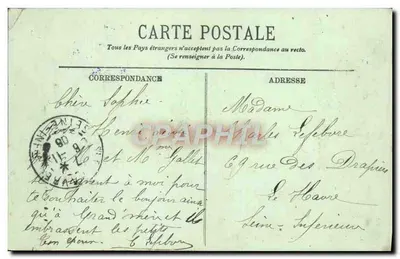 CARTE POSTALE
Tous les Pays étrangers n'acceptent pas la Correspondance au recto.
(Se renseigner à la Poste).
CORRESPONDANCE
ADRESSE
Chère Sophie
Madame
Lefebvre
et M Jallet
69 rue des Drapiers
à moi pour
te souhaiter le bonjour ainsi
Le Havre
qu'à Grand'mère et ils
Seine Inférieure
embrassent les petits
Ton époux E Lefebvre